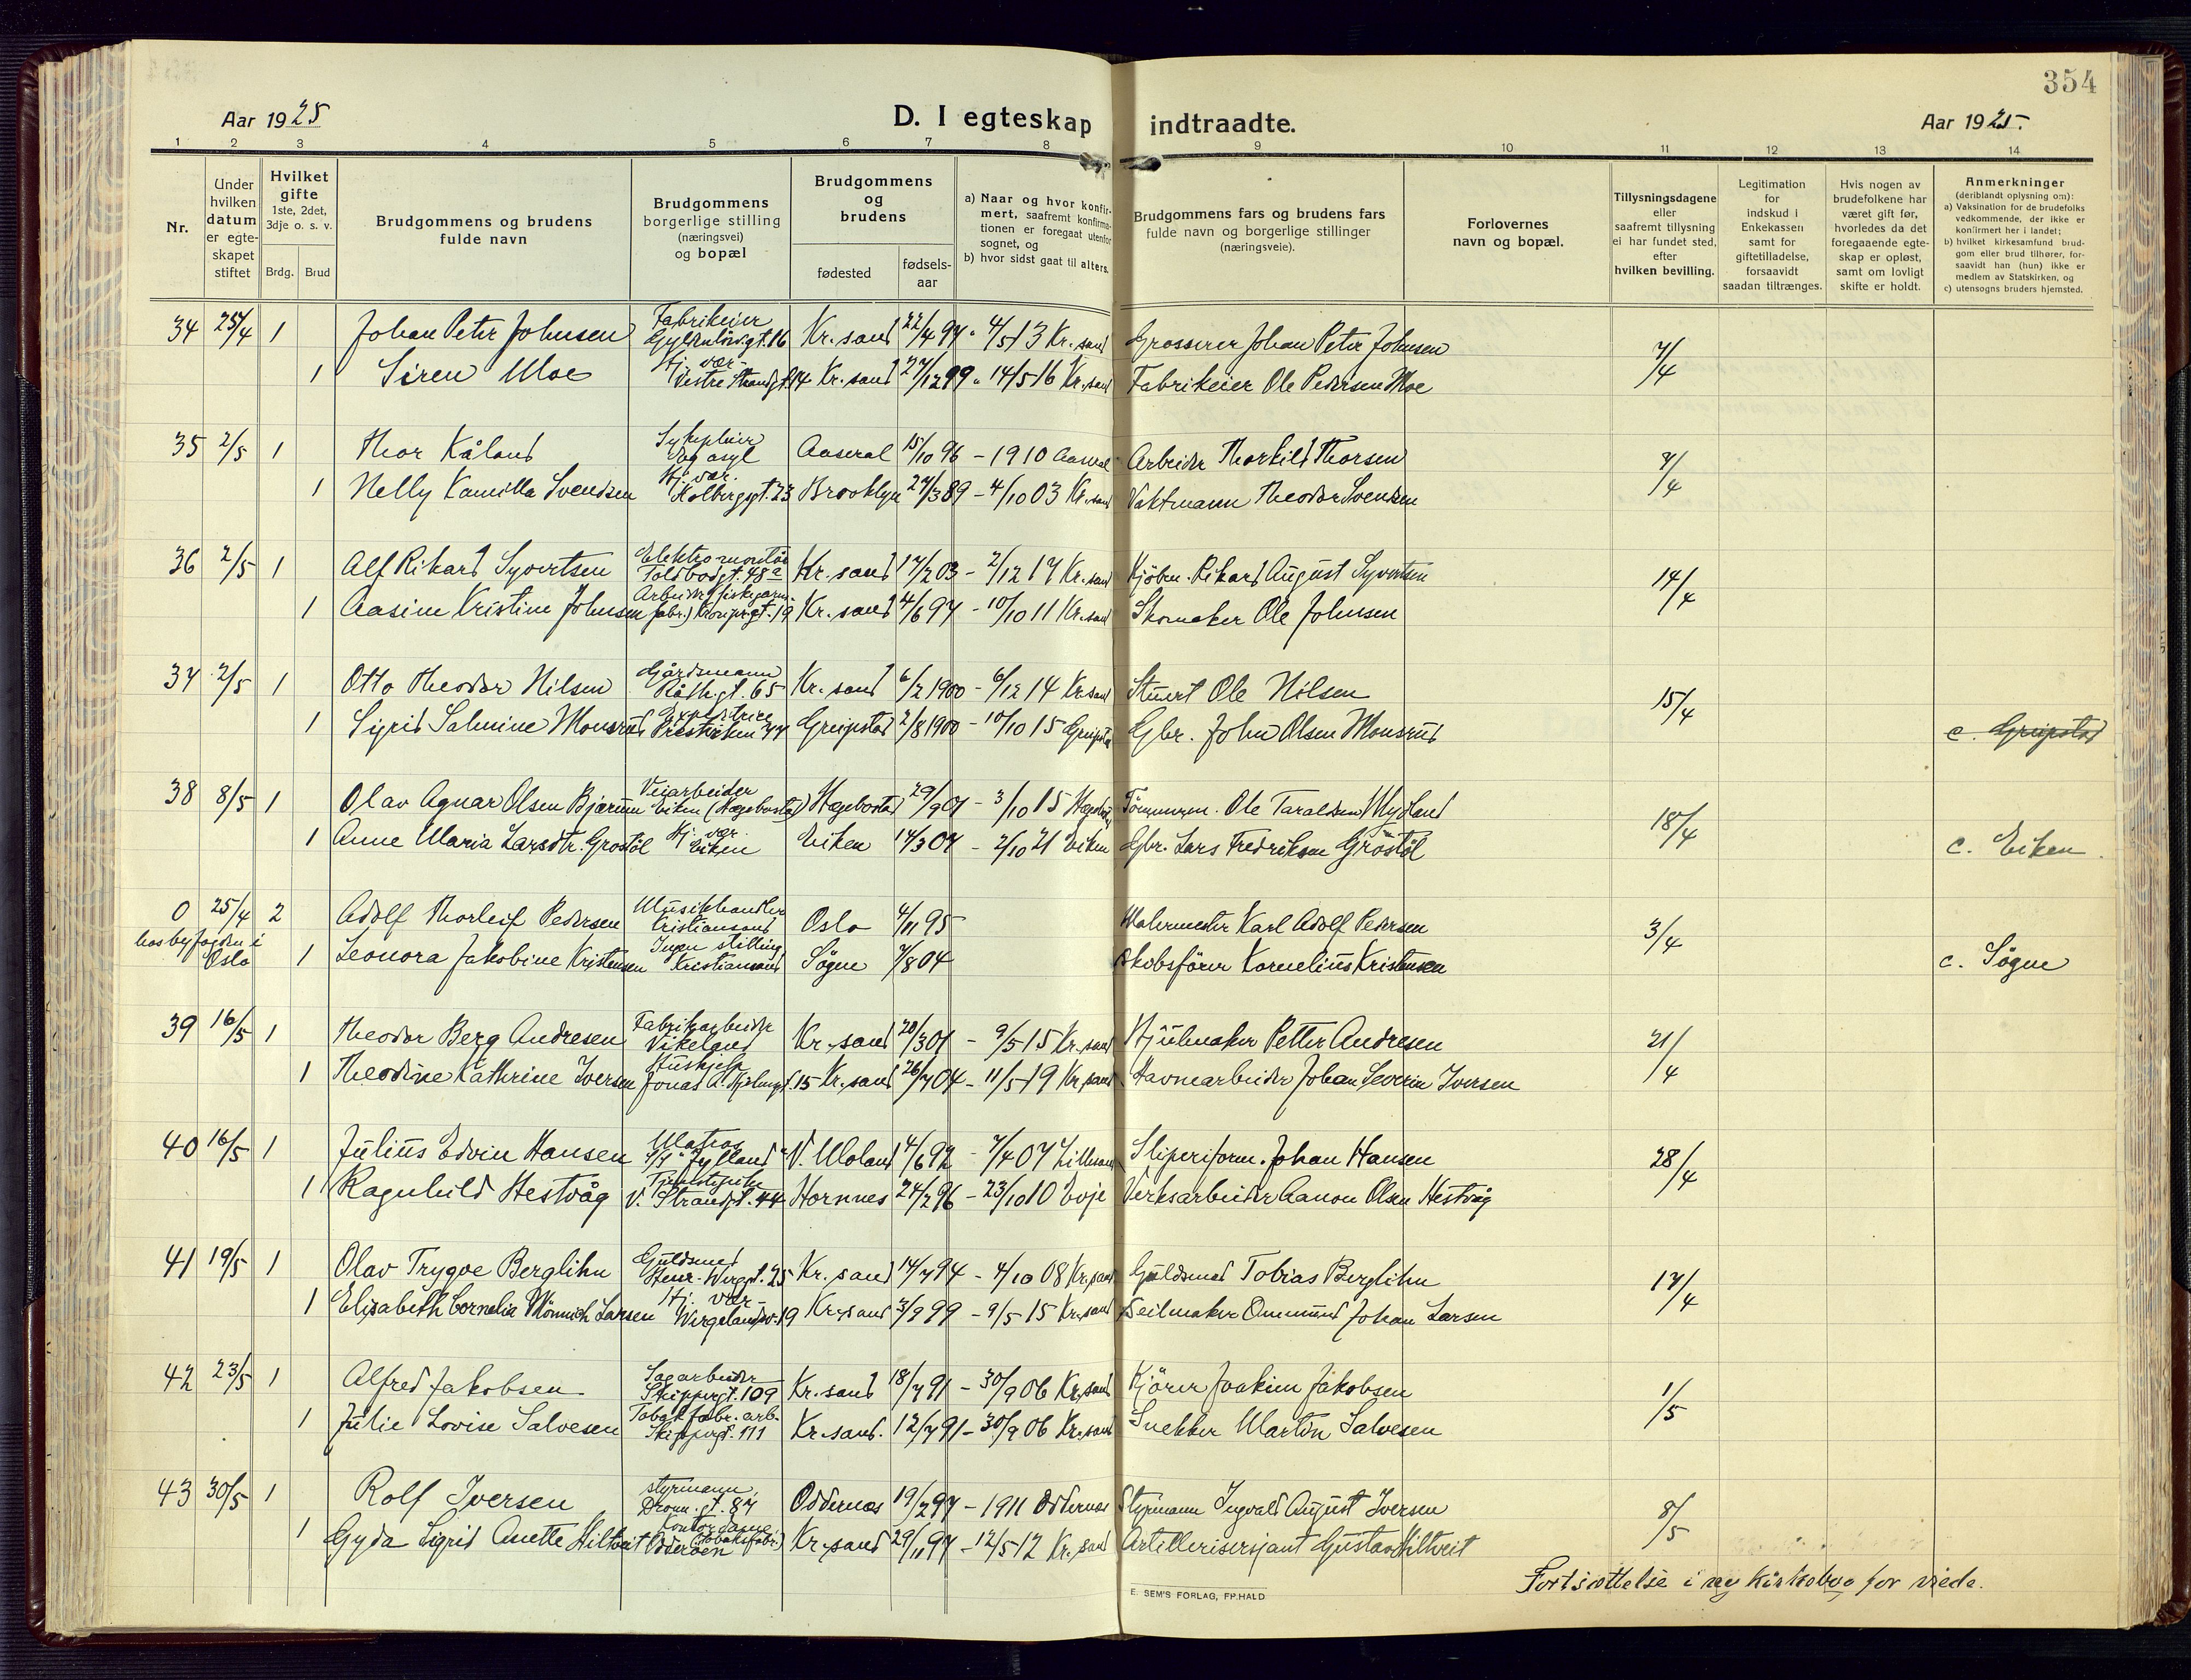 354
Aar 1925
D. I egteskap indtraadte.
Aar 1925.
1 2 3 4 5 6 7 8 9 10 11 12 13 14
Nr.
Under hvilken datum er egteskapet stiftet
Hvilket gifte 1ste, 2det, 3dje o. s. v.
Brdg. Brud
Brudgommens og brudens fulde navn
Brudgommens borgerlige stilling (næringsvei) og bopæl
Brudgommens og brudens
fødested
fødsels-aar
a) Naar og hvor konfirmert, saafremt konfirmationen er foregaat utenfor sognet, og
b) hvor sidst gaat til alters.
Brudgommens fars og brudens fars fulde navn og borgerlige stillinger (næringsveie).
Forlovernes navn og bopæl.
Tillysningsdagene eller saafremt tillysning ei har fundet sted, efter hvilken bevilling.
Legitimation for indskud i Enkekassen samt for giftetilladelse, forsaavidt saadan tiltrænges.
Hvis nogen av brudefolkene har været gift før, hvorledes da det foregaaende egteskap er opløst, samt om lovligt skifte er holdt.
Anmerkninger (deriblandt oplysning om):
a) Vaksination for de brudefolks vedkommende, der ikke er konfirmert her i landet;
b) hvilket kirkesamfund brudgom eller brud tilhører, forsaavidt han (hun) ikke er medlem av Statskirken, og
c) utensogns bruders hjemsted.
34 25/4 1 Johan Peter Johnsen Fabrikeier Gyldenløvsgt. 16 Kr. sand 22/4 97 - 4/5 13 Kr. sand Grosserer Johan Peter Johnsen 7/4
1 Siren Moe Hj. vær. Vestre Strandgt. 14 Kr. sand 27/12 99 - 14/5 16 Kr. sand Fabrikeier Ole Pedersen Moe
35 2/5 1 Thor Kåland Sykepleier Aaseral 15/10 96 - 1910 Aaseral Arbeider Thorkild Thorsen 7/4
1 Nelly Kamilla Svendsen Hj. vær. Holbergsgt. 23 Brooklyn 27/3 89 - 4/10 03 Kr. sand Vaktmann Theodor Svendsen
36 2/5 1 Alf Rikard Syvertsen Elektromontør Toldbodgt. 48a Kr. sand 17/2 03 - 2/12 17 Kr. sand Kjøbm. Rikard August Syvertsen 14/4
1 Aasine Kristine Johnsen Arbeider (fiskegarnfabr.) Kronprgt. 19 Kr. sand 4/6 97 - 10/10 11 Kr. sand Skomaker Ole Johnsen
37 2/5 1 Otto Theodor Nilsen Gårdsmann Rådh.gt. 65 Kr. sand 6/2 1900 - 6/12 14 Kr. sand Stuert Ole Nilsen 15/4
1 Sigrid Salmine Monsrud Expeditrice 77 Greipstad 2/8 1900 - 10/10 15 Greipstad Gbr. John Olsen Monsrud c. Greipstad
38 8/5 1 Olav Agnar Olsen Bjærum Veiarbeider Eiken (Hægebostad) Hægebostad 29/9 01 - 3/10 15 Hægebostad Tømmerm. Ole Taraldsen Mydland 18/4
1 Anne Maria Larsdtr. Grostøl Hj. vær. Eiken Eiken 14/3 04 - 2/10 21 Eiken Gbr. Lars Fredriksen Grøstøl c. Eiken
0 25/4 2 Adolf Thorleif Pedersen Musikhandler Kristiansand Oslo 4/11 95 Malermester Karl Adolf Pedersen 3/4
hos byfogden i Oslo
1 Leonora Jakobine Kristensen Ingen stilling Kristiansand Søgne 7/8 04 Skibsfører Kornelius Kristensen c. Søgne
39 16/5 1 Theodor Berg Andresen Fabrikarbeider Vikeland Kr. sand 20/3 01 - 9/5 15 Kr. sand Hjulmaker Petter Andresen 21/4
1 Theodine Kathrine Iversen Hushjelp Jonas A. Hjelmsgt. 15 Kr. sand 26/7 04 - 11/5 19 Kr. sand Havnearbeider Johan Severin Iversen
40 16/5 1 Julius Edvin Hansen Matros S/S "Jylland" V. Moland 4/6 92 - 7/4 07 Lillesand Sliperiform. Johan Hansen 28/4
1 Ragnhild Hestvåg Tjenestepike V. Strandgt. 44 Hornnes 24/2 96 - 23/10 10 Evje Verksarbeider Aanon Olsen Hestvåg
41 19/5 1 Olav Trygve Berglihn Guldsmed Henr. Wergst. 25 Kr. sand 14/7 94 - 4/10 08 Kr. sand Guldsmed Tobias Berglihn 17/4
1 Elisabeth Cornelia Mønnich Larsen Hj. vær. Wergelandsv. 19 Kr. sand 3/9 99 - 9/5 15 Kr. sand Seilmaker Ommund Johan Larsen
42 23/5 1 Alfred Jakobsen Sagarbeider Skippergt. 109 Kr. sand 18/7 91 - 30/9 06 Kr. sand Kjører Joakim Jakobsen 1/5
1 Julie Lovise Salvesen Tobakfabr. arb. Skippergt. 111 Kr. sand. 12/7 91 - 30/9 06 Kr. sand Snekker Martin Salvesen
43 30/5 1 Rolf Iversen styrmann, Dronn. gt. 87 Oddernes 19/2 97 - 1911 Oddernes Styrmann Ingvald August Iversen 8/5
1 Gyda Sigrid Anette Hiltveit Kontordame (tobaksfabr.) Odderøen Kr. sand 29/11 97 - 12/5 12 Kr. sand Artillerisersjant Gustav Hiltveit
Fortsættelse i ny kirkebog for viede.
E. SEM'S FORLAG, FR.HALD